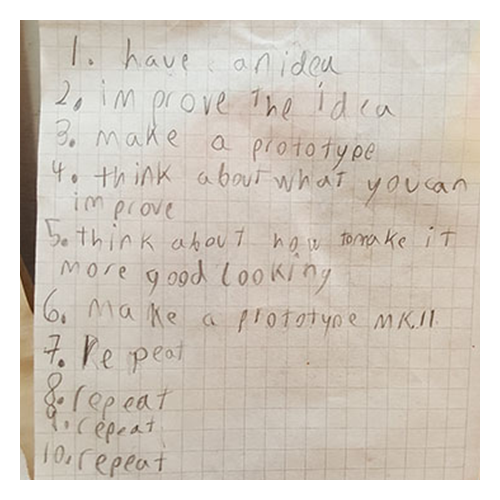 1. have an idea
2. improve the idea
3. make a prototype
4. think about what you can
improve
5. think about how to make it
more good looking
6. Make a prototype MK.II.
7. Repeat
8. repeat
9. repeat
10. repeat